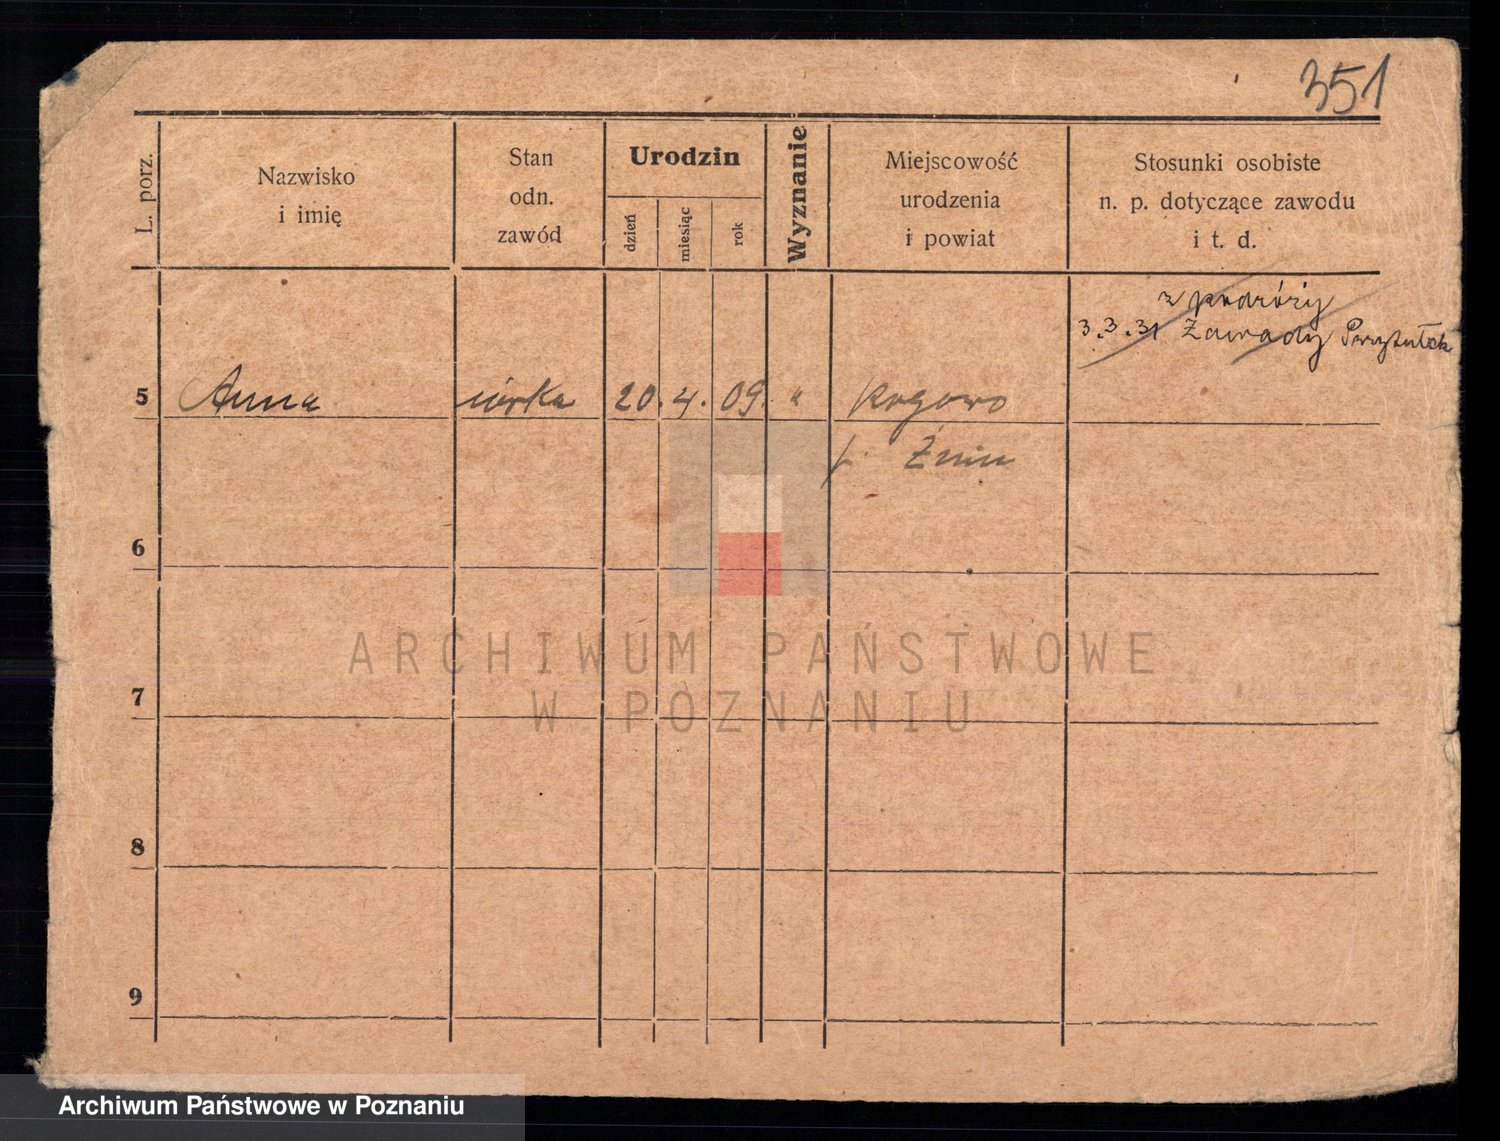 351
L. porz.
Nazwisko
i imię
Stan
odn.
zawód
Urodzin
dzień
miesiąc
rok
Wyznanie
Miejscowość
urodzenia
i powiat
Stosunki osobiste
n. p. dotyczące zawodu
i t. d.
z podróży
3.3.31 Zawady Przytułek
5 Anna córka 20. 4. 09. " Rogowo
p. Żnin
6
7
8
9
ARCHIWUM PAŃSTWOWE
W POZNANIU
Archiwum Państwowe w Poznaniu